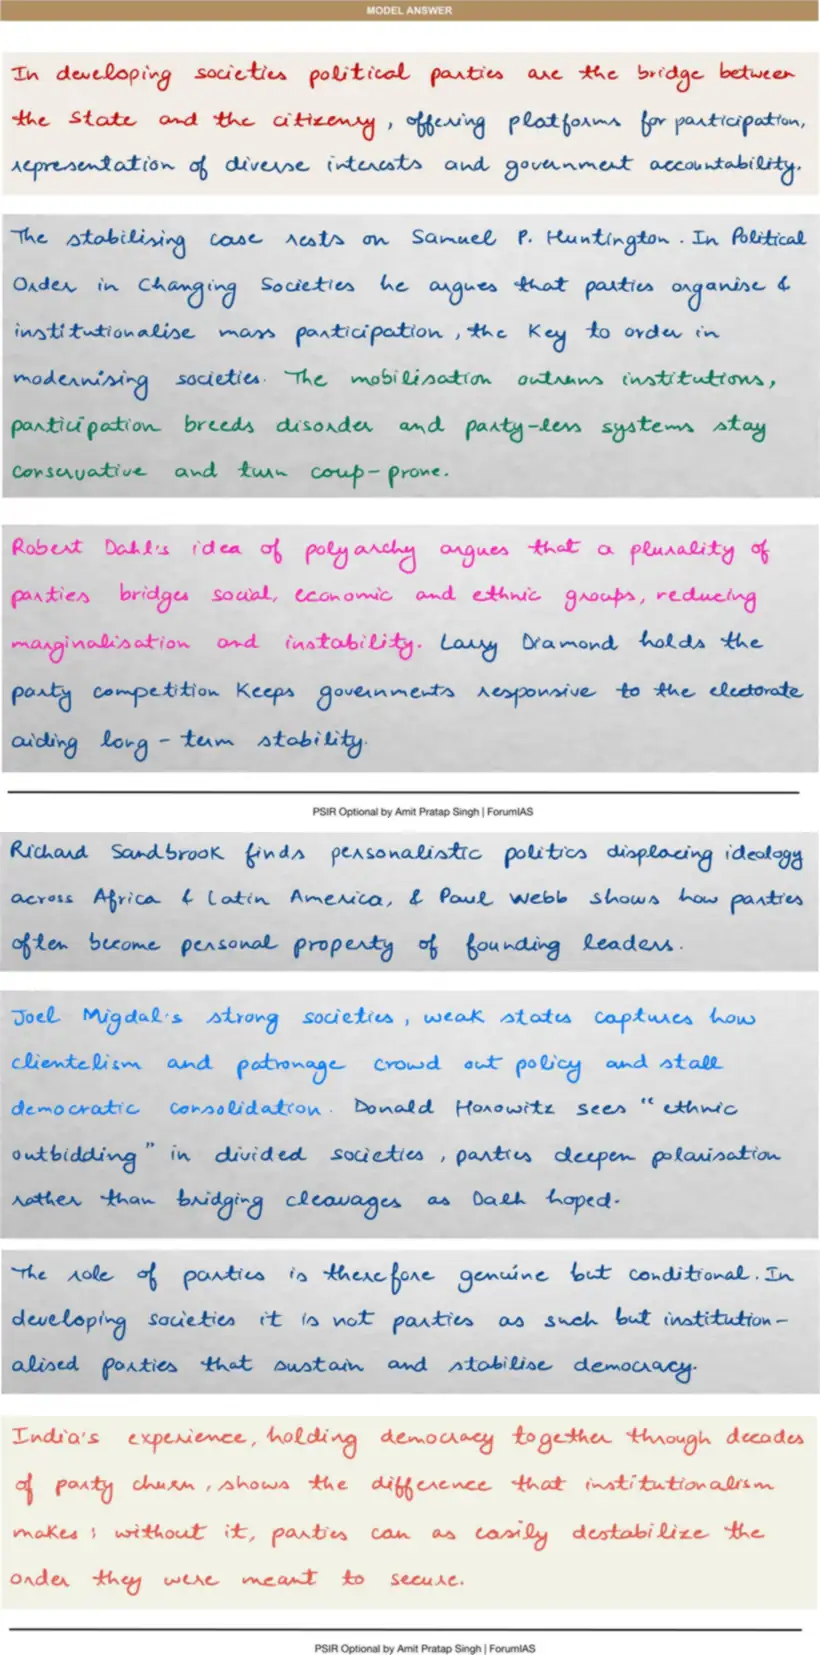 MODEL ANSWER
In developing societies political parties are the bridge between
the State and the citizenry, offering platforms for participation,
representation of diverse interests and government accountability.
The stabilising case rests on Samuel P. Huntington. In Political
Order in Changing Societies he argues that parties organise &
institutionalise mass participation, the Key to order in
modernising societies. The mobilisation outruns institutions,
participation breeds disorder and party-less systems stay
conservative and turn coup-prone.
Robert Dahl's idea of polyarchy argues that a plurality of
parties bridges social, economic and ethnic groups, reducing
marginalisation and instability. Larry Diamond holds the
party competition Keeps governments responsive to the electorate
aiding long-term stability.
PSIR Optional by Amit Pratap Singh | ForumIAS
Richard Sandbrook finds personalistic politics displacing ideology
across Africa & Latin America, & Paul Webb shows how parties
often become personal property of founding leaders.
Joel Migdal's strong societies, weak states captures how
clientelism and patronage crowd out policy and stall
democratic consolidation. Donald Horowitz sees "ethnic
outbidding" in divided societies, parties deepen polarisation
rather than bridging cleavages as Dalh hoped.
The role of parties is therefore genuine but conditional. In
developing societies it is not parties as such but institution-
alised parties that sustain and stabilise democracy.
India's experience, holding democracy together through decades
of party churn, shows the difference that institutionalism
makes; without it, parties can as easily destabilize the
order they were meant to secure.
PSIR Optional by Amit Pratap Singh | ForumIAS